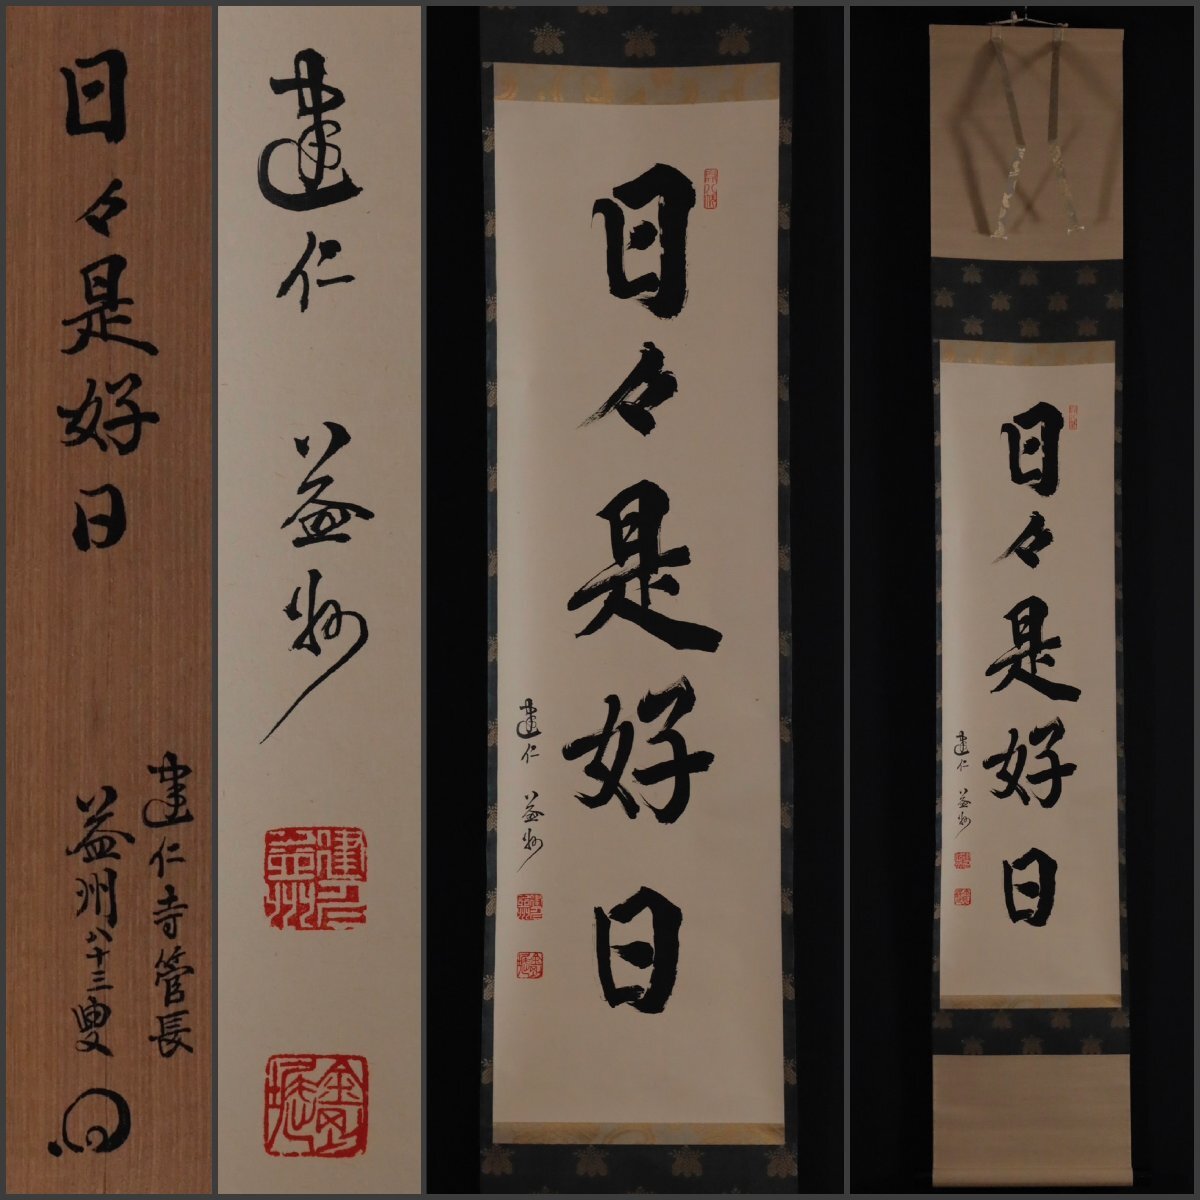 日々是好日
建仁寺管長
益州八十三叟
建仁
益州
建仁
益州
日々是好日
建仁 益州
建仁
益州
日々是好日
建仁 益州